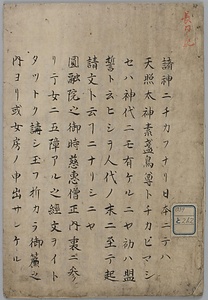 諸神ニチカフナリ日本ニテハ
天照太神素盞烏尊トチカヒマシ
セハ神代ニモ有ケルニヤ幼ハ盟
誓ト云ヒシヲ人代ノ末ニ至テ起
請文ト云フニナリシニヤ
圓融院之御時慈恵僧正内裏ニ参
リテ女ニ五障アル之經文ヲイト
タツトク講シ玉フ折カラ御簾之
内ヨリ或女房ノ申出サレケル